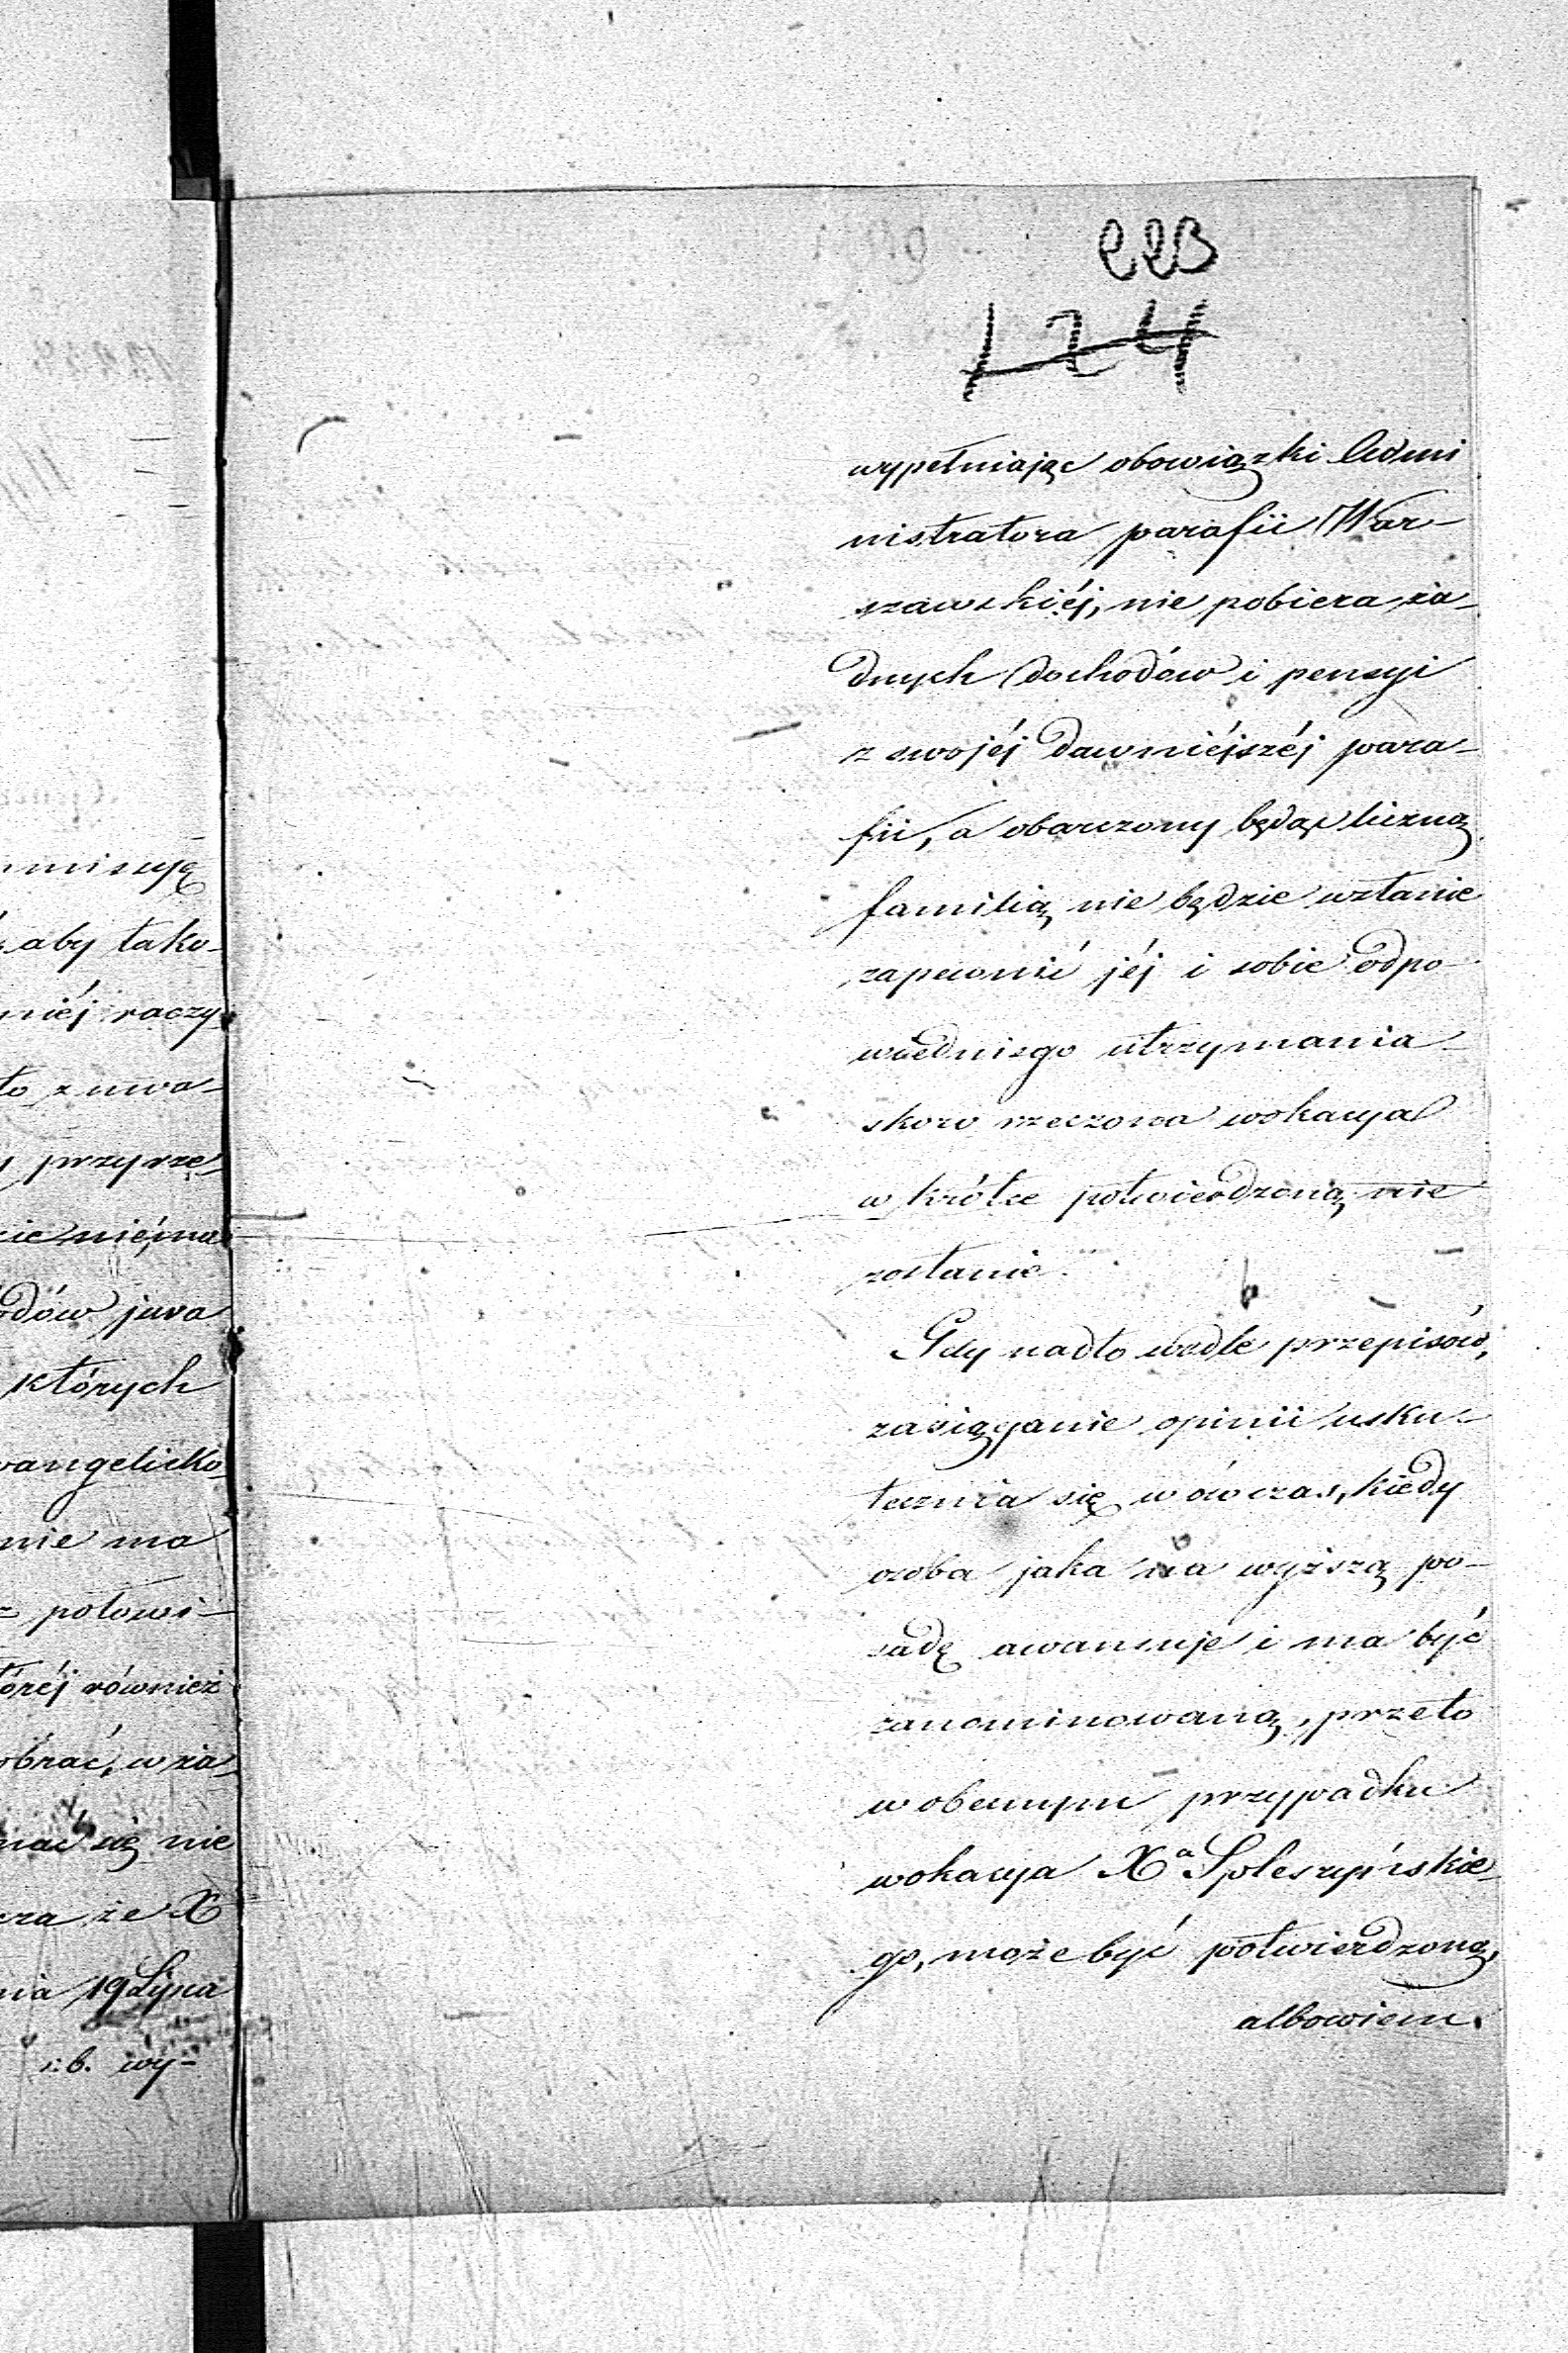 124
wypełniając obowiązki Admi
nistratora parafii War-
szawskiéj, nie pobiera ża-
dnych dochodów i pensyi
z swojéj dawniéjszéj para-
fii, a obarczony będąc liczną
familią nie będzie wstanie
zapewnić jéj i sobie odpo-
wiedniego utrzymania
skoro rzeczona wokacya
w krótce potwierdzoną nie
zostanie.
Gdy nadto wedle przepisów,
zasięganie opinii usku-
tecznia się w ówczas, kiedy
osoba jaka na wyższą po-
sadę awansuje i ma być
zanominowaną, przeto
w obecnym przypadku
wokacya Xa Spleszyńskie-
go, może być potwierdzoną,
albowiem.
missyę
aby tako-
niéj raczy
to z uwa-
przyrze-
nié ma
odów jura
których
wangelicko
nie ma
połowi-
tóréj również
obrać, w ża-
się nie
że X
nia 19 Lipca
r. b. wy-